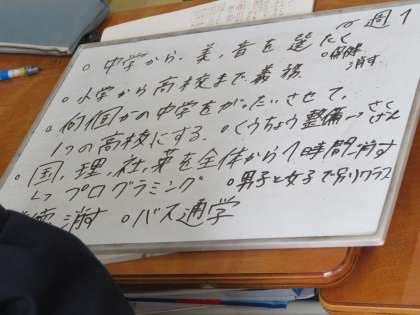 ○中学から、美、音を選たく
週1
○保健
消す
○小学から高校まで義務
○何個かの中学をがったいさせて、
1つの高校にする。
○くうちょう整備→さくげん
○国、理、社、英を全体から1時間消す
↳プログラミング
○男子と女子で別クラス
消す
○バス通学